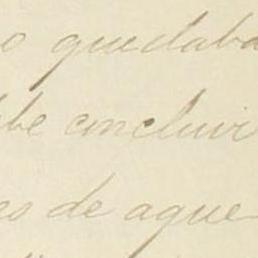 o quedaba
be concluir
es de aque